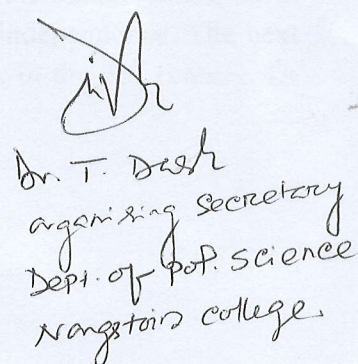 Dr. T. Dash
organising secretary
Dept. of Pol. Science
Nongstoin college